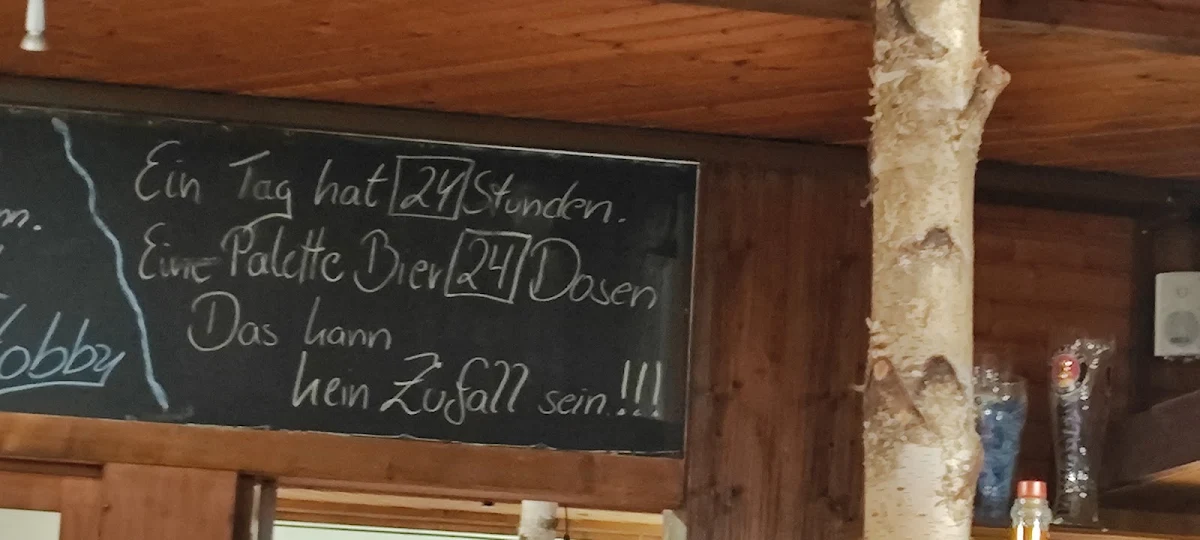 Ein Tag hat 24 Stunden.
Eine Palette Bier 24 Dosen
Das kann
kein Zufall sein!!!